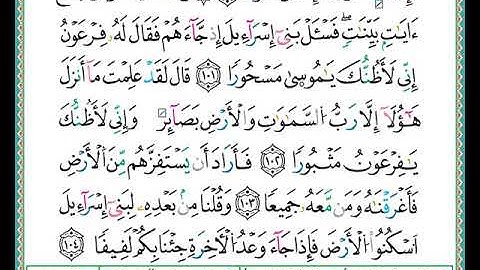 ءَايَٰتٍۭ بَيِّنَٰتٍۖ فَسْـَٔلْ بَنِىٓ إِسْرَٰٓءِيلَ إِذْ جَآءَهُمْ فَقَالَ لَهُۥ فِرْعَوْنُ
إِنِّى لَأَظُنُّكَ يَٰمُوسَىٰ مَسْحُورًا ١٠١ قَالَ لَقَدْ عَلِمْتَ مَآ أَنزَلَ
هَٰٓؤُلَآءِ إِلَّا رَبُّ ٱلسَّمَٰوَٰتِ وَٱلْأَرْضِ بَصَآئِرَ وَإِنِّى لَأَظُنُّكَ
يَٰفِرْعَوْنُ مَثْبُورًا ١٠٢ فَأَرَادَ أَن يَسْتَفِزَّهُم مِّنَ ٱلْأَرْضِ
فَأَغْرَقْنَٰهُ وَمَن مَّعَهُۥ جَمِيعًا ١٠٣ وَقُلْنَا مِنۢ بَعْدِهِۦ لِبَنِىٓ إِسْرَٰٓءِيلَ
ٱسْكُنُوا۟ ٱلْأَرْضَ فَإِذَا جَآءَ وَعْدُ ٱلْأَخِرَةِ جِئْنَا بِكُمْ لَفِيفًا ١٠٤